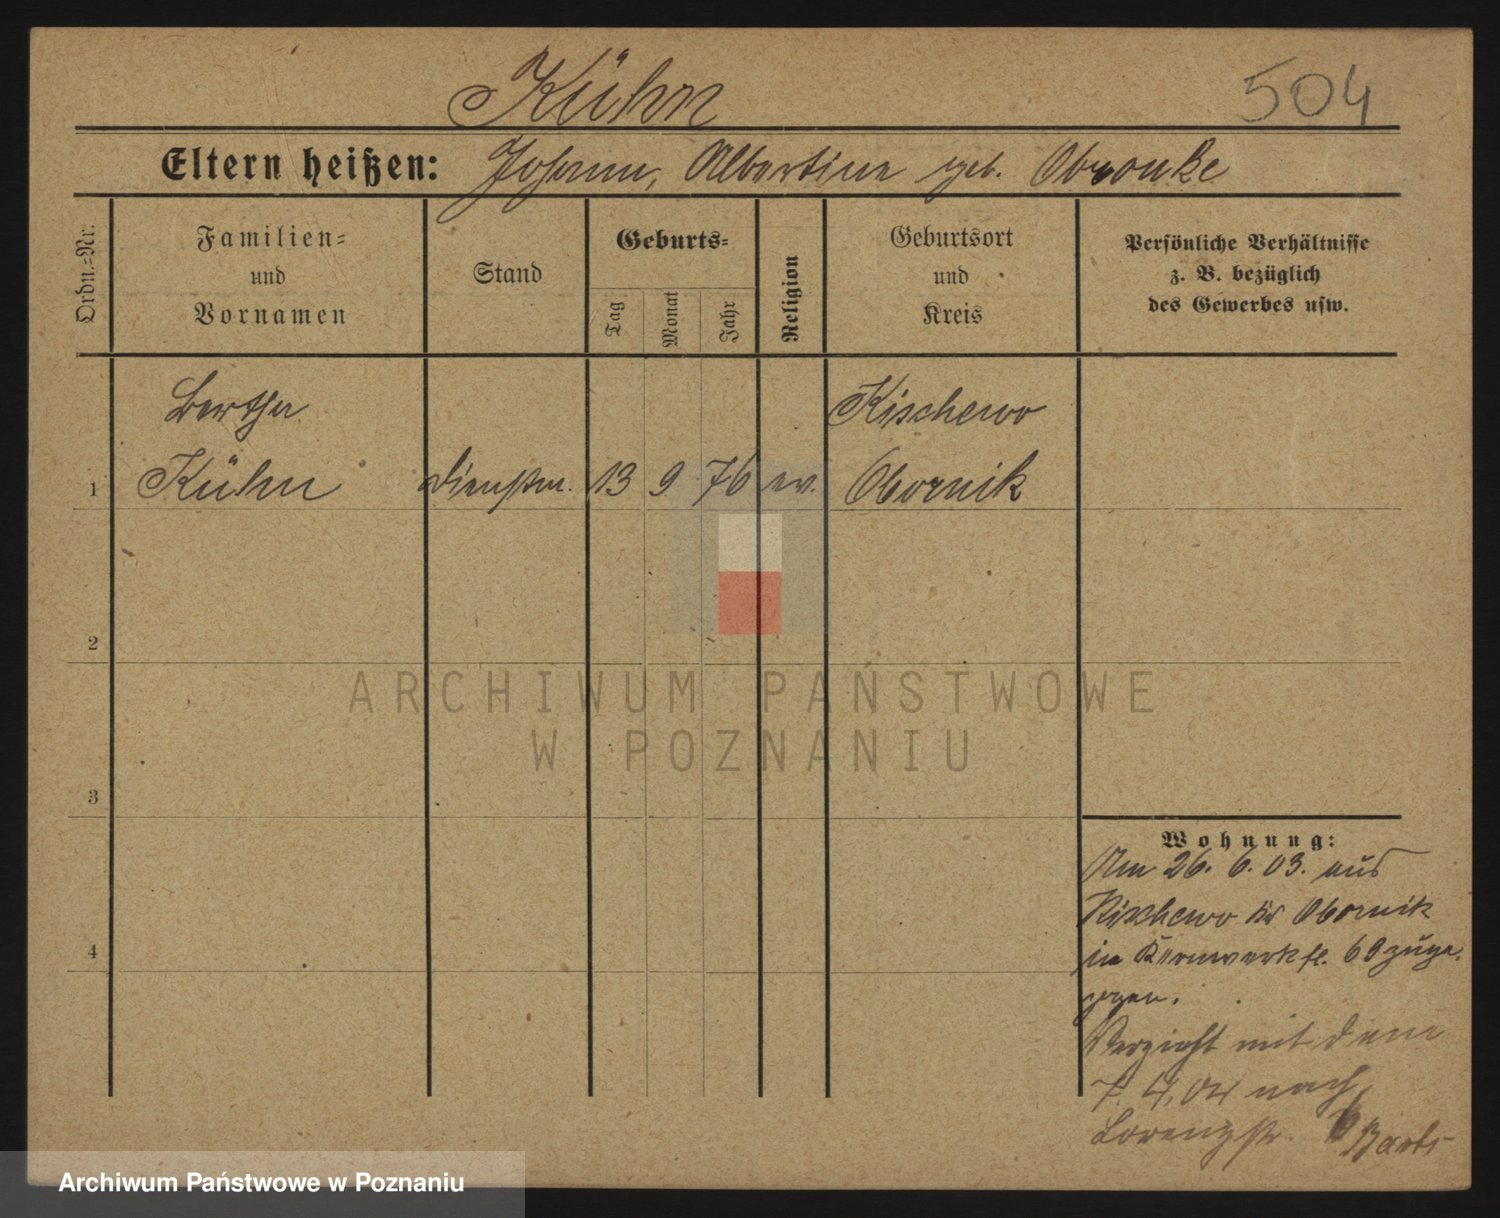 Kühn
504
Eltern heißen: Johann, Albertine geb. Obronke
Ordn.-Nr.
Familien-
und
Vornamen
Stand
Geburts-
Tag
Monat
Jahr
Religion
Geburtsort
und
Kreis
Persönliche Verhältnisse
z. B. bezüglich
des Gewerbes usw.
Bertha
Kischewo
1 Kühn Dienstm. 13 9 76 ev. Obornik
2
3
4
Wohnung:
Am 26. 6. 03. aus
Kischewo Kr Obornik
in Kernwerkst. 6 zuge
zogen.
Verzieht mit dem
7. 4. 04 nach
Lorenzstr. 6
ARCHIWUM PAŃSTWOWE
W POZNANIU
Archiwum Państwowe w Poznaniu